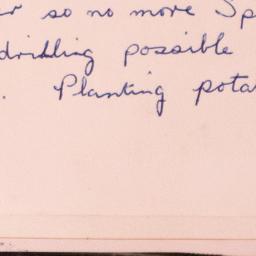 so no more Sp
drilling possible
. Planting pota